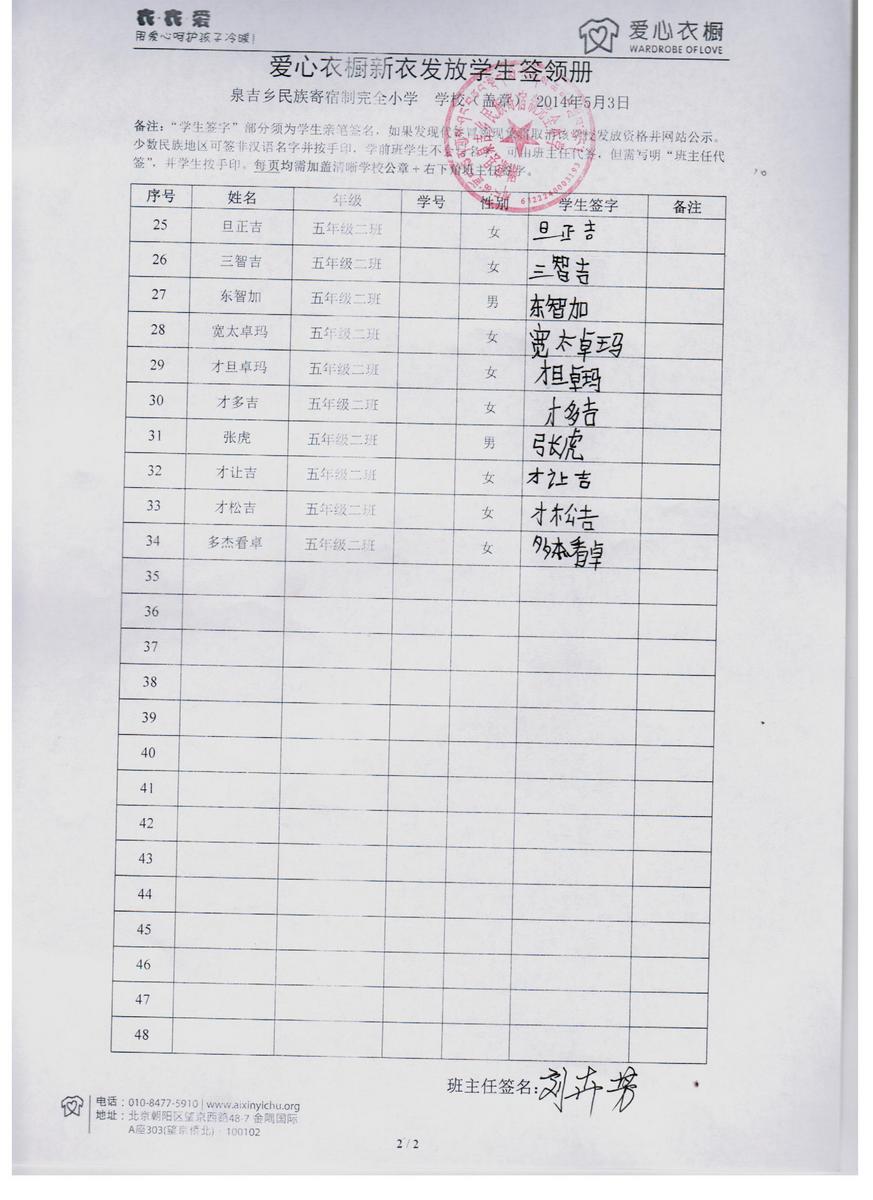 衣·衣 爱
用爱心呵护孩子冷暖!
爱心衣橱
WARDROBE OF LOVE
爱心衣橱新衣发放学生签领册
泉吉乡民族寄宿制完全小学 学校（盖章） 2014年5月3日
备注：“学生签字”部分须为学生亲笔签名，如果发现代签冒领现象将取消该学校发放资格并网站公示。
少数民族地区可签非汉语名字并按手印，学前班学生不会写名字，可由班主任代签，但需写明“班主任代
签”，并学生按手印。每页均需加盖清晰学校公章+右下角班主任签字。
6322240003193
序号 姓名 年级 学号 性别 学生签字 备注
25 旦正吉 五年级二班 女 旦正吉
26 三智吉 五年级二班 女 三智吉
27 东智加 五年级二班 男 东智加
28 宽太卓玛 五年级二班 女 宽太卓玛
29 才旦卓玛 五年级二班 女 才旦卓玛
30 才多吉 五年级二班 女 才多吉
31 张虎 五年级二班 男 张虎
32 才让吉 五年级二班 女 才让吉
33 才松吉 五年级二班 女 才松吉
34 多杰看卓 五年级二班 女 多杰看卓
35
36
37
38
39
40
41
42
43
44
45
46
47
48
班主任签名：刘卉芳
电话：010-8477-5910 | www.aixinyichu.org
地址：北京朝阳区望京西路48-7 金隅国际
A座303(望京桥北)·100102
2 / 2